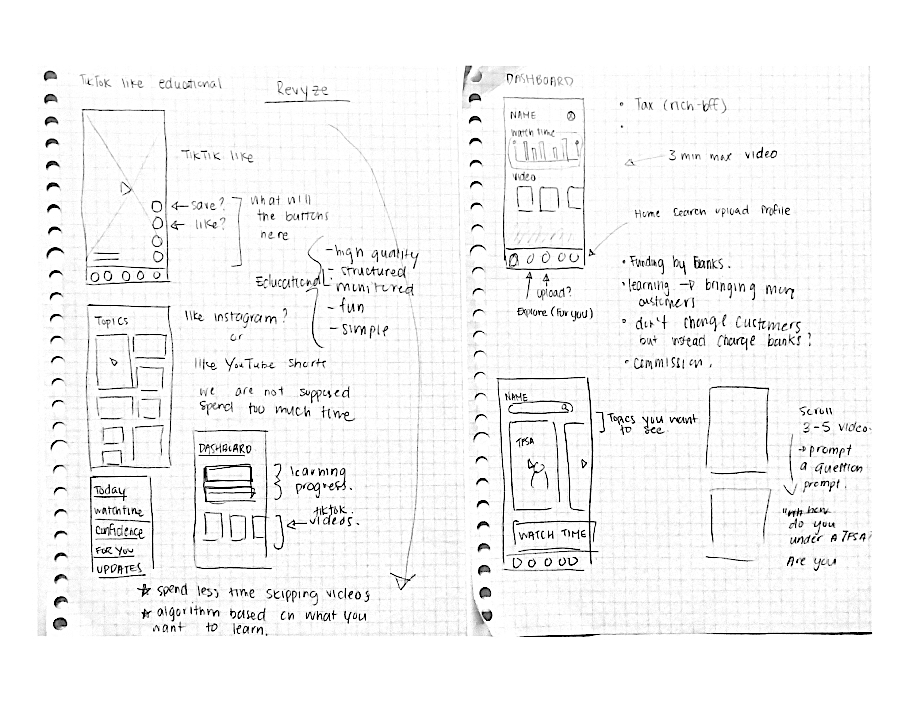 TikTok like educational
Revyze
TikTik like
save?
like?
what will
the buttons
here
Educational
- high quality
- structured
- monitored
- fun
- simple
Topics
like instagram?
or
like YouTube shorts
we are not supposed
spend too much time
DASHBOARD
learning
progress.
tiktok.
videos.
Today
watchtime
confidence
FOR YOU
UPDATES
☆ spend less time skipping videos
☆ algorithm based on what you
want to learn.
DASHBOARD
NAME
watch time
video
upload?
Explore (for you)
• Tax (rich-off)
•
3 min max video
Home search upload profile
• Funding by Banks.
• learning → bringing more
customers
• don't change customers
but instead charge banks?
• commission.
NAME
TFSA
WATCH TIME
Topics you want
to see.
Scroll
3-5 video.
→ prompt
a question
prompt.
how
do you
under a TFSA?
Are you